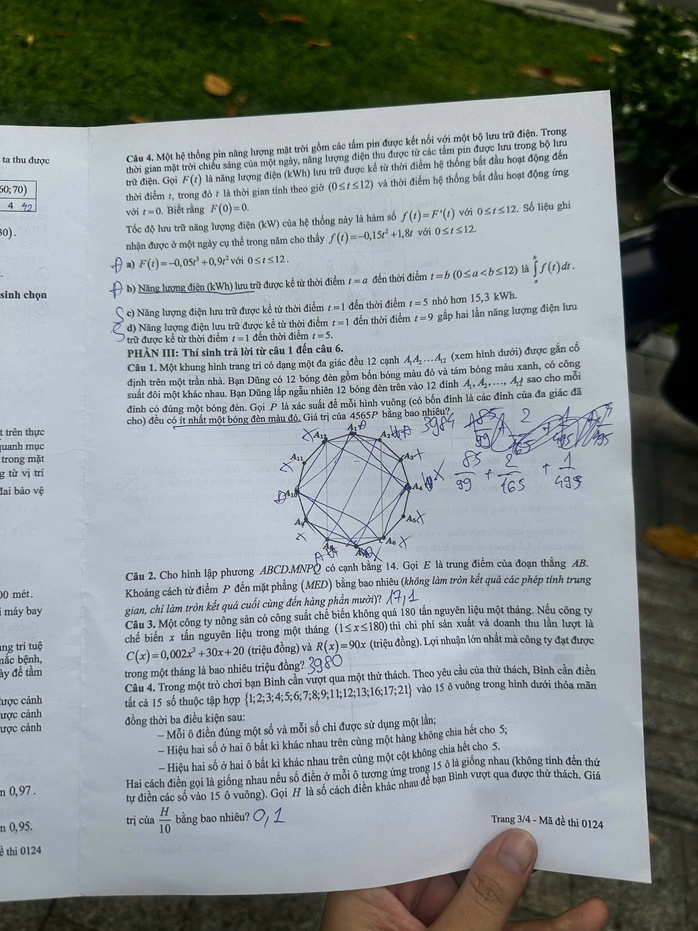 ta thu được
60; 70)
4 42
30).
sinh chọn
t trên thực
quanh mục
trong mặt
g từ vị trí
đai bảo vệ
00 mét.
máy bay
ng trí tuệ
mắc bệnh,
ày để tầm
ược cảnh
ược cảnh
ược cảnh
n 0,97.
n 0,95.
ề thi 0124
Câu 4. Một hệ thống pin năng lượng mặt trời gồm các tấm pin được kết nối với một bộ lưu trữ điện. Trong
thời gian mặt trời chiếu sáng của một ngày, năng lượng điện thu được từ các tấm pin được lưu trong bộ lưu
trữ điện. Gọi F(t) là năng lượng điện (kWh) lưu trữ được kể từ thời điểm hệ thống bắt đầu hoạt động đến
thời điểm t, trong đó t là thời gian tính theo giờ (0≤t≤12) và thời điểm hệ thống bắt đầu hoạt động ứng
với t=0. Biết rằng F(0)=0.
Tốc độ lưu trữ năng lượng điện (kW) của hệ thống này là hàm số f(t)=F'(t) với 0≤t≤12. Số liệu ghi
nhận được ở một ngày cụ thể trong năm cho thấy f(t)=−0,15t²+1,8t với 0≤t≤12.
a) F(t)=−0,05t³+0,9t² với 0≤t≤12.
b) Năng lượng điện (kWh) lưu trữ được kể từ thời điểm t=a đến thời điểm t=b (0≤a<b≤12) là ∫ₐᵇ f(t)dt.
S c) Năng lượng điện lưu trữ được kể từ thời điểm t=1 đến thời điểm t=5 nhỏ hơn 15,3 kWh.
S d) Năng lượng điện lưu trữ được kể từ thời điểm t=1 đến thời điểm t=9 gấp hai lần năng lượng điện lưu
trữ được kể từ thời điểm t=1 đến thời điểm t=5.
PHẦN III: Thí sinh trả lời từ câu 1 đến câu 6.
Câu 1. Một khung hình trang trí có dạng một đa giác đều 12 cạnh A₁A₂…A₁₂ (xem hình dưới) được gắn cố
định trên một trần nhà. Bạn Dũng có 12 bóng đèn gồm bốn bóng màu đỏ và tám bóng màu xanh, có công
suất đôi một khác nhau. Bạn Dũng lắp ngẫu nhiên 12 bóng đèn trên vào 12 đỉnh A₁, A₂,…, A₁₂ sao cho mỗi
đỉnh có đúng một bóng đèn. Gọi P là xác suất để mỗi hình vuông (có bốn đỉnh là các đỉnh của đa giác đã
cho) đều có ít nhất một bóng đèn màu đỏ. Giá trị của 4565P bằng bao nhiêu?
3984
A₁
A₁₂
A₂
A₁₁
A₃
A₁₀
A₄
A₉
A₅
A₈
A₆
85/99 + 2/165 + 1/495
Câu 2. Cho hình lập phương ABCD.MNPQ có cạnh bằng 14. Gọi E là trung điểm của đoạn thẳng AB.
Khoảng cách từ điểm P đến mặt phẳng (MED) bằng bao nhiêu (không làm tròn kết quả các phép tính trung
gian, chỉ làm tròn kết quả cuối cùng đến hàng phần mười)? 17,1
Câu 3. Một công ty nông sản có công suất chế biến không quá 180 tấn nguyên liệu một tháng. Nếu công ty
chế biến x tấn nguyên liệu trong một tháng (1≤x≤180) thì chi phí sản xuất và doanh thu lần lượt là
C(x)=0,002x³+30x+20 (triệu đồng) và R(x)=90x (triệu đồng). Lợi nhuận lớn nhất mà công ty đạt được
trong một tháng là bao nhiêu triệu đồng? 3980
Câu 4. Trong một trò chơi bạn Bình cần vượt qua một thử thách. Theo yêu cầu của thử thách, Bình cần điền
tất cả 15 số thuộc tập hợp {1;2;3;4;5;6;7;8;9;11;12;13;16;17;21} vào 15 ô vuông trong hình dưới thỏa mãn
đồng thời ba điều kiện sau:
– Mỗi ô điền đúng một số và mỗi số chỉ được sử dụng một lần;
– Hiệu hai số ở hai ô bất kì khác nhau trên cùng một hàng không chia hết cho 5;
– Hiệu hai số ở hai ô bất kì khác nhau trên cùng một cột không chia hết cho 5.
Hai cách điền gọi là giống nhau nếu số điền ở mỗi ô tương ứng trong 15 ô là giống nhau (không tính đến thứ
tự điền các số vào 15 ô vuông). Gọi H là số cách điền khác nhau để bạn Bình vượt qua được thử thách. Giá
trị của H/10 bằng bao nhiêu? 0,1
Trang 3/4 - Mã đề thi 0124